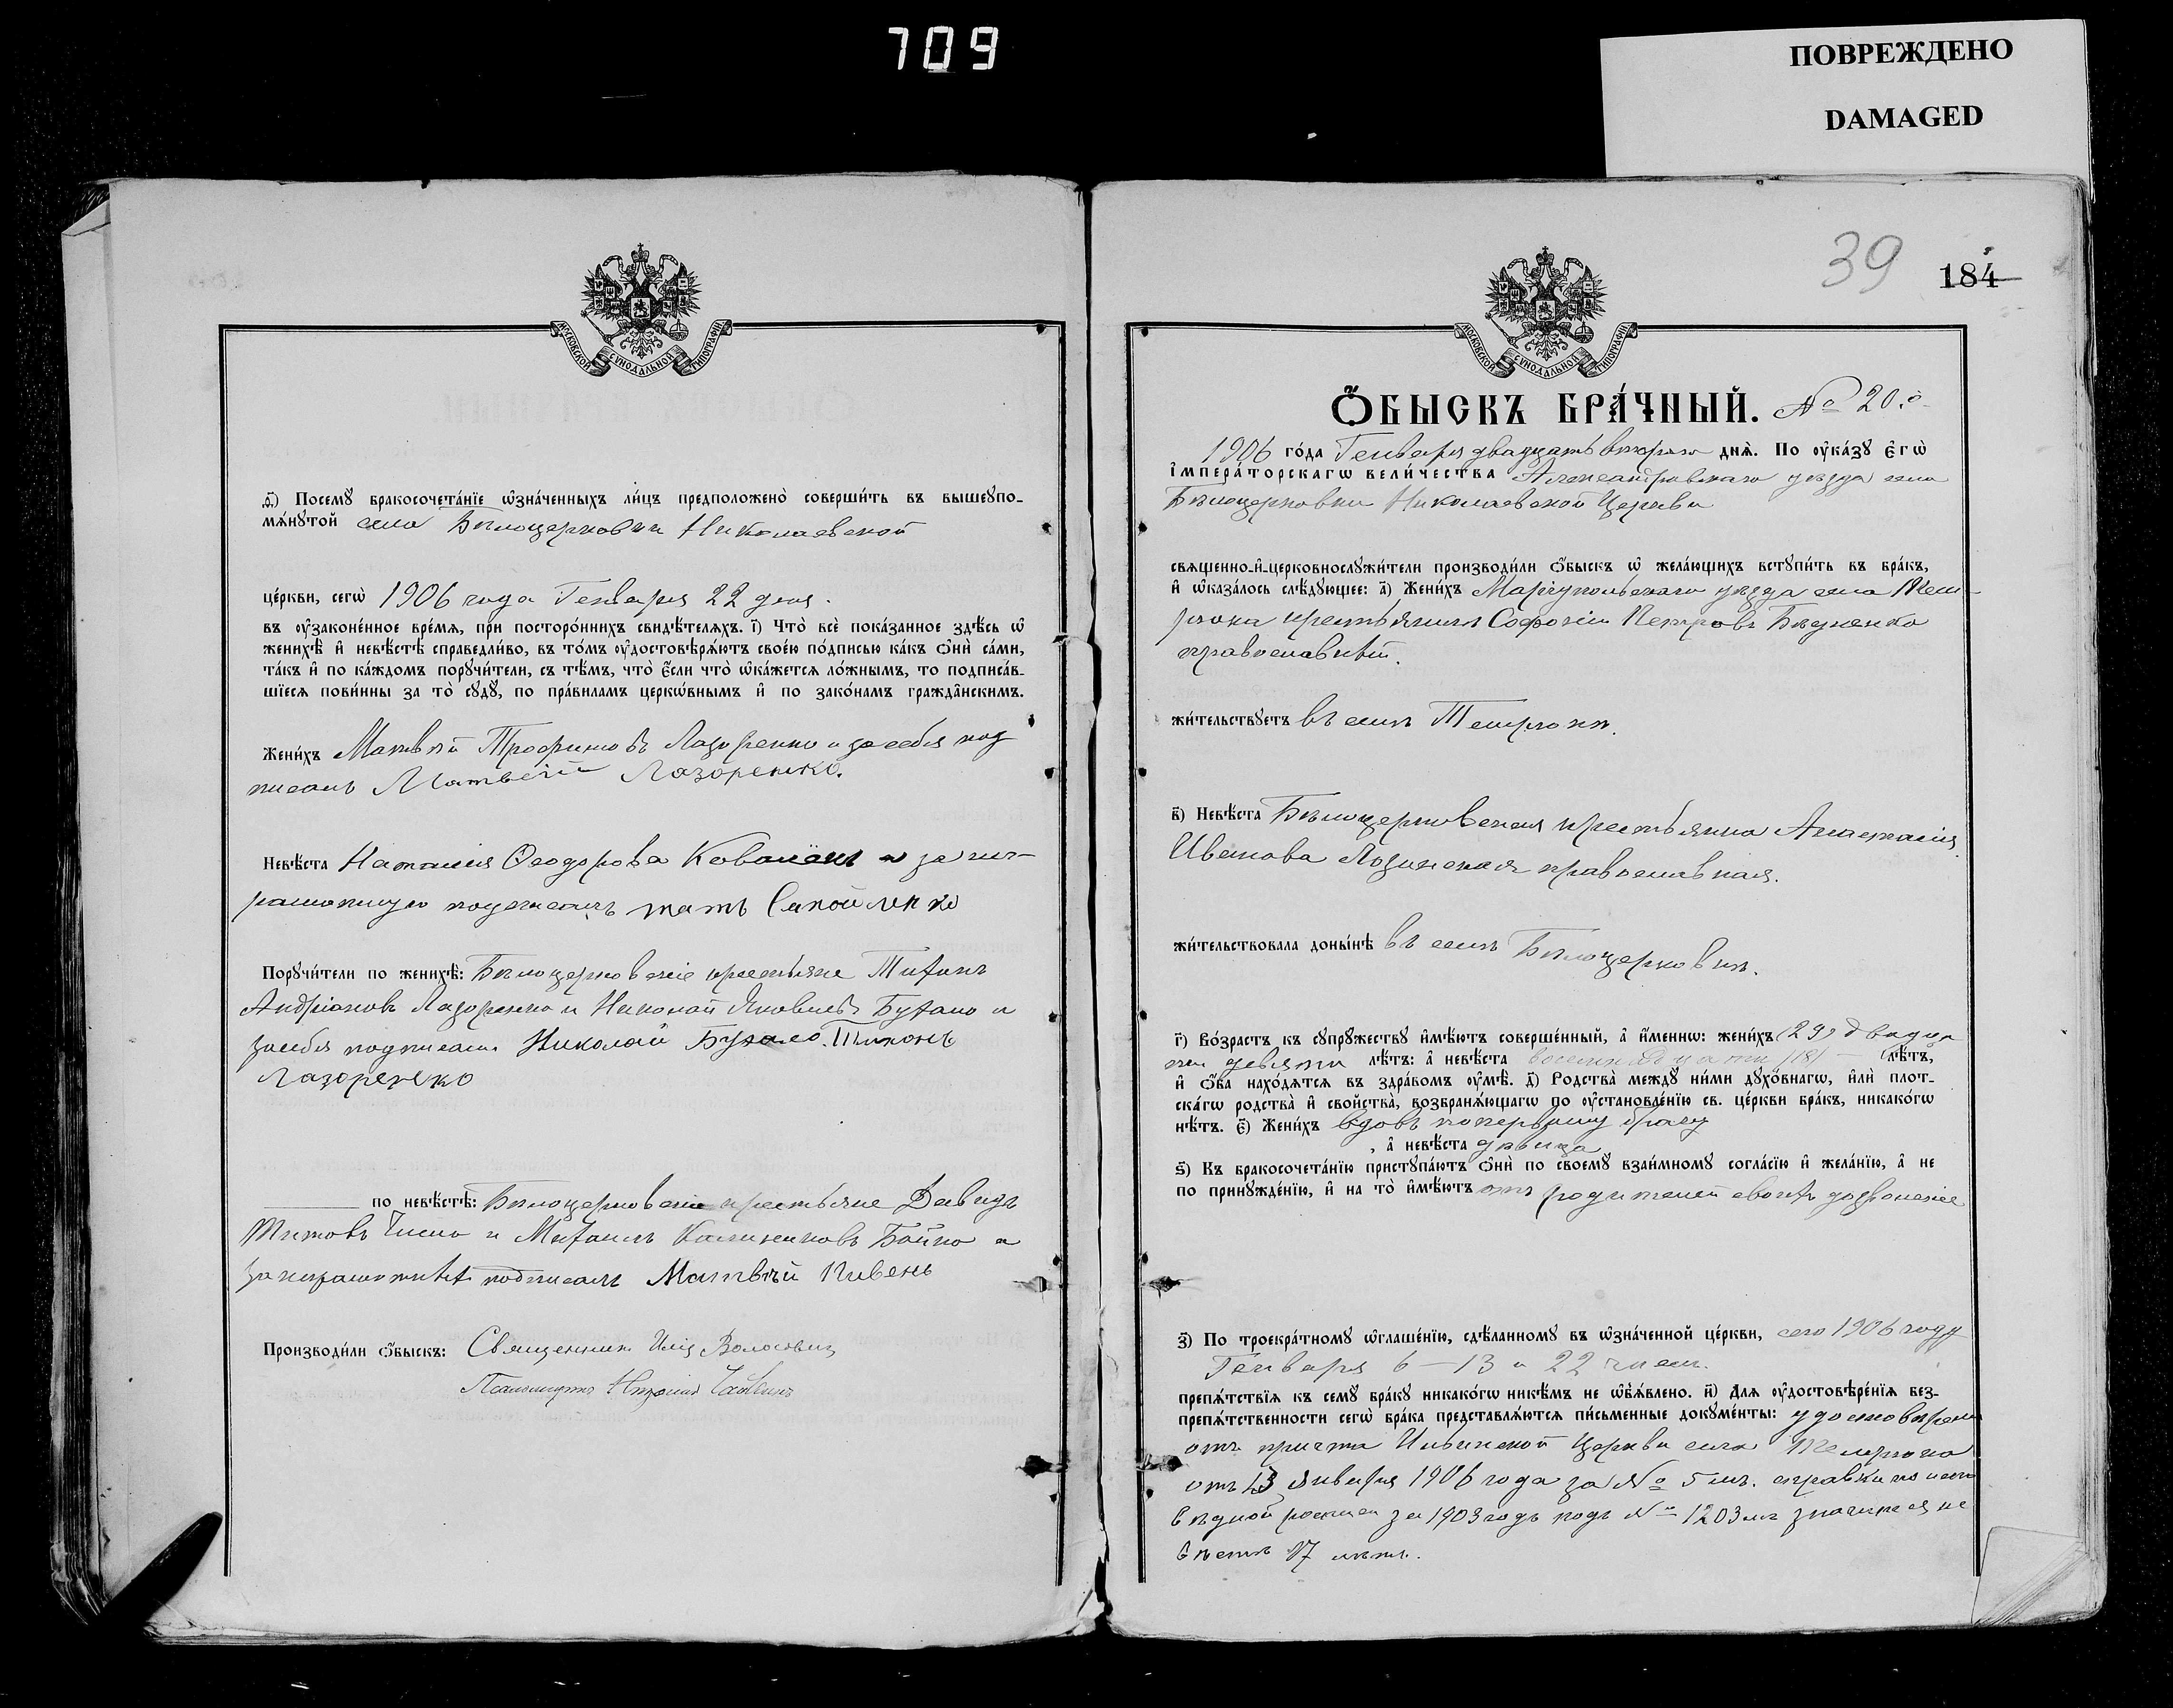 709
ПОВРЕЖДЕНО
DAMAGED
МОСКОВСКОЙ СѴНОДАЛЬНОЙ ТИПОГРАФІИ
ѳ҃) Посемꙋ̀ бракосочета́нїе ѡ҆зна́ченныхъ ли́цъ предположено̀ соверши́ть въ вышеꙋпо-
мѧ́нꙋтой села Бѣлоцерковки Николаевской
це́ркви, сегѡ̀ 1906 года Генваря 22 дня.
въ ᲂу҆законе́нное вре́мѧ, при посторо́ннихъ свидѣ́телѧхъ. і҃) Что̀ всѐ пока́занное здѣ́сь ѡ҆
женихѣ̀ и҆ невѣ́стѣ справедли́во, въ то́мъ ᲂу҆достовѣрѧ́ютъ свое́ю по́дписью ка́къ ѻ҆нѝ са́ми,
та́къ и҆ по ка́ждомъ порꙋчи́тели, съ тѣ́мъ, что̀ є҆́сли что̀ ѡ҆ка́жетсѧ ло́жнымъ, то подписа́в-
шїесѧ пови́нны за то̀ сꙋдꙋ̀, по пра́виламъ церко́внымъ и҆ по зако́намъ гражда́нскимъ.
Жени́хъ Матвѣй Трофимовъ Лазоренко и за себя под
писалъ Матвей Лазоренко.
Невѣ́ста Наталия Ѳеодорова и за негра-
мотную подписалъ
Порꙋчи́тели по женихѣ̀: Бѣлоцерковскіе крестьяне Тихонъ
Андріановъ Лазоренко и Николай Яковлевъ Бухало и
за себя подписали Николай Бухало. Тихонъ
Лазоренко
по невѣ́стѣ: Бѣлоцерковскіе крестьяне Давидъ
Титовъ и Михаилъ Калиниковъ Бойко а
за неграмотныхъ подписалъ Матвѣй Пивень
Производи́ли ѻ҆́быскъ: Священникъ Илія
Псаломщикъ
39 184
МОСКОВСКОЙ СѴНОДАЛЬНОЙ ТИПОГРАФІИ
Ѻ҆́БЫСКЪ БРА́ЧНЫЙ. № 20.й
1906 го́да Генваря двадцать втораго днѧ̀. По ᲂу҆ка́зꙋ Є҆гѡ̀
І҆мпера́торскагѡ вели́чества Александровскаго уѣзда села
Бѣлоцерковки Николаевской Церкви
свѧщенно-и҆-церковнослꙋжи́тели производи́ли ѻ҆́быскъ ѡ҆ жела́ющихъ встꙋпи́ть въ бра́къ,
и҆ ѡ҆каза́лось слѣ́дꙋющее: а҃) Жени́хъ Маріупольскаго уѣзда села Тем-
рюка крестьянинъ Софоній Петровъ Бѣдненко
православный.
жи́тельствꙋетъ въ селѣ Темрюкѣ.
в҃) Невѣ́ста Бѣлоцерковская крестьянка Анастасія
Иванова Лозинская православная.
жи́тельствовала доны́нѣ въ селѣ Бѣлоцерковкѣ.
г҃) Во́зрастъ къ сꙋпрꙋ́жествꙋ и҆мѣ́ютъ соверше́нный, а҆ и҆́меннѡ: жени́хъ (29) двадца
ти девяти лѣ́тъ: а҆ невѣ́ста восемнадцати (18) — лѣ́тъ,
и҆ ѻ҆́ба нахо́дѧтсѧ въ здра́вомъ ᲂу҆мѣ̀. д҃) Родства̀ междꙋ̀ ни́ми дꙋхо́внагѡ, и҆лѝ плот-
ска́гѡ родства̀ и҆ свойства̀, возбранѧ́ющагѡ по ᲂу҆становле́нїю св. це́ркви бра́къ, никако́гѡ
нѣ́тъ. є҃) Жени́хъ вдовъ по первому браку
, а҆ невѣ́ста дѣвица
ѕ҃) Къ бракосочета́нїю пристꙋпа́ютъ ѻ҆нѝ по своемꙋ̀ взаи́мномꙋ согла́сїю и҆ жела́нїю, а҆ не
по принꙋжде́нїю, и҆ на то̀ и҆мѣ́ютъ отъ родителей своихъ дозволеніе
з҃) По троекра́тномꙋ ѡ҆глаше́нїю, сдѣ́ланномꙋ въ ѡ҆зна́ченной це́ркви, сего 1906 году
Генваря 6 — 13 и 22 числ.
препѧ́тствїѧ къ семꙋ̀ бра́кꙋ никако́гѡ никѣ́мъ не ѡ҆б̾ѧ́влено. и҃) Длѧ ᲂу҆достовѣре́нїѧ без-
препѧ́тственности сегѡ̀ бра́ка представлѧ́ютсѧ пи́сьменные докꙋме́нты: удостовѣрен
отъ причта Ильинской Церкви села Темрюка
отъ 13 января 1906 года за № 5 мъ. справки по испо
вѣдной росписи за 1903 годъ подъ № 1203 мъ значится не
вѣста 17 лѣтъ.